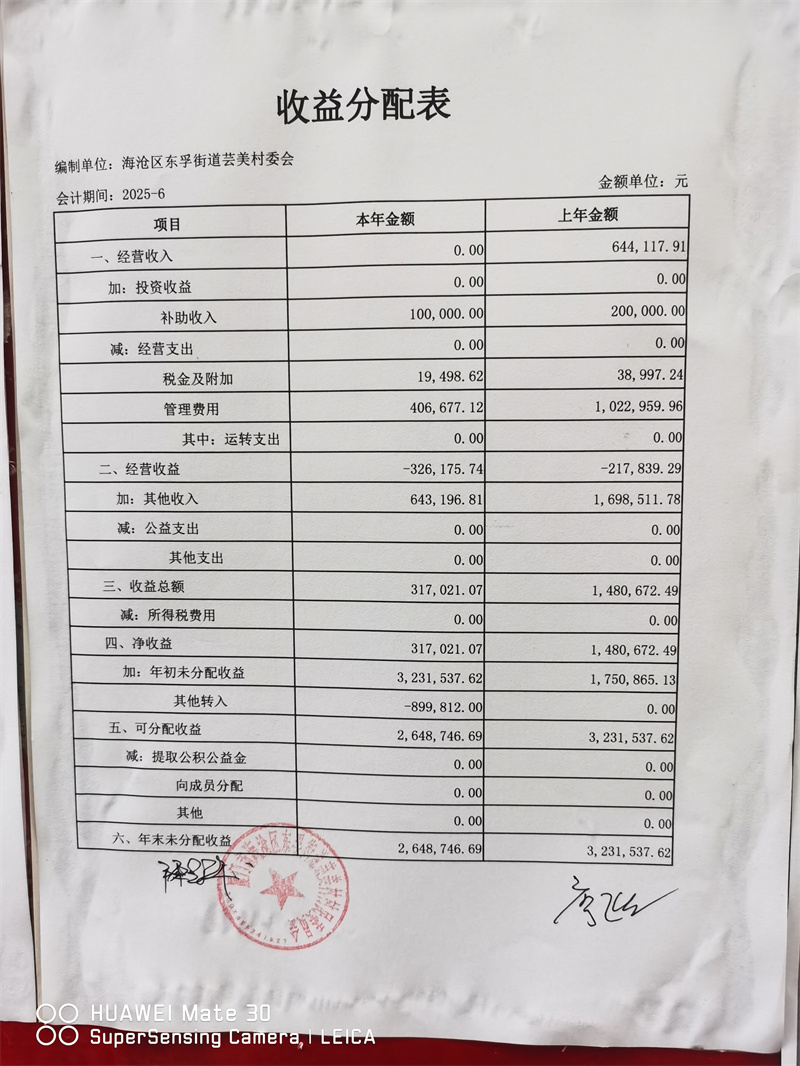 收益分配表
编制单位：海沧区东孚街道芸美村委会
会计期间：2025-6 金额单位：元
项目 本年金额 上年金额
一、经营收入 0.00 644,117.91
加：投资收益 0.00 0.00
补助收入 100,000.00 200,000.00
减：经营支出 0.00 0.00
税金及附加 19,498.62 38,997.24
管理费用 406,677.12 1,022,959.96
其中：运转支出 0.00 0.00
二、经营收益 -326,175.74 -217,839.29
加：其他收入 643,196.81 1,698,511.78
减：公益支出 0.00 0.00
其他支出 0.00 0.00
三、收益总额 317,021.07 1,480,672.49
减：所得税费用 0.00 0.00
四、净收益 317,021.07 1,480,672.49
加：年初未分配收益 3,231,537.62 1,750,865.13
其他转入 -899,812.00 0.00
五、可分配收益 2,648,746.69 3,231,537.62
减：提取公积公益金 0.00 0.00
向成员分配 0.00 0.00
其他 0.00 0.00
六、年末未分配收益 2,648,746.69 3,231,537.62
HUAWEI Mate 30
SuperSensing Camera | LEICA